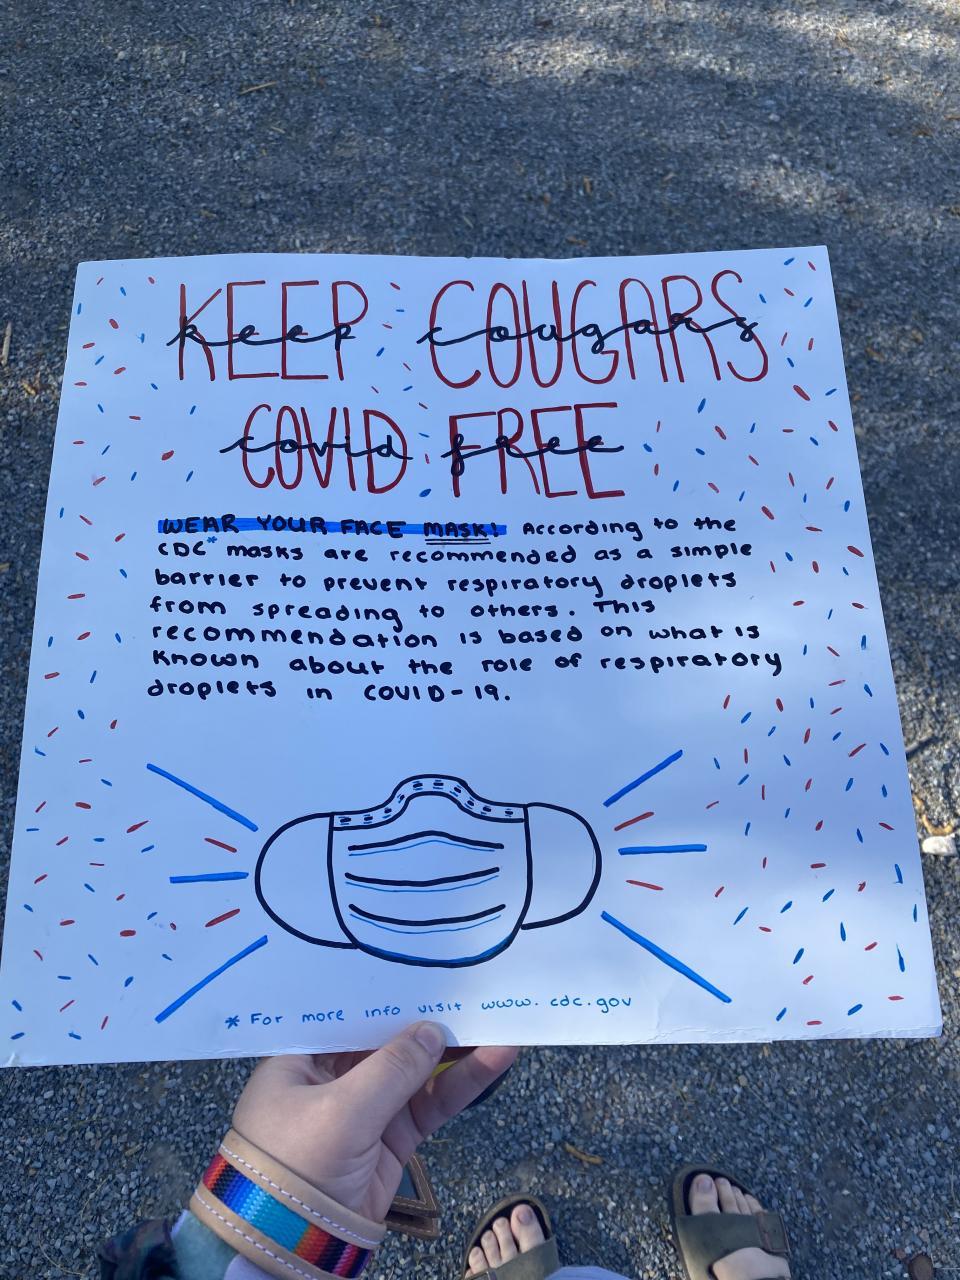 KEEP COUGARS
keep cougars
COVID FREE
covid free
WEAR YOUR FACE MASK! According to the
CDC* masks are recommended as a simple
barrier to prevent respiratory droplets
from spreading to others. This
recommendation is based on what is
known about the role of respiratory
droplets in COVID-19.
* For more info visit www.cdc.gov